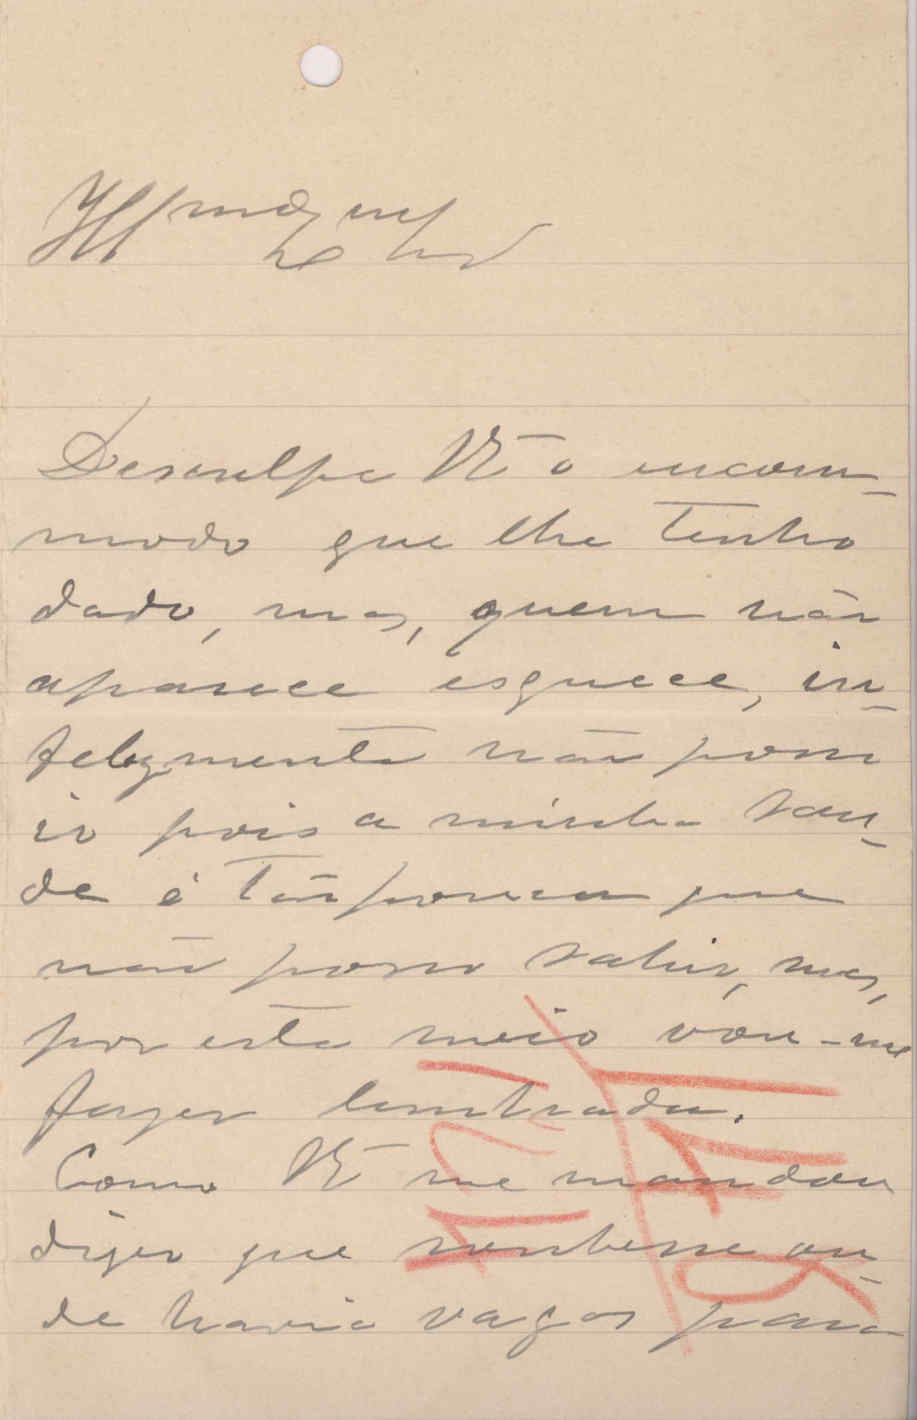 Desculpe VE o incom-
modo que lhe tenho
dado, mas, quem não
aparece esquece, in-
felizmente não posso
ir pois a minha sau-
de é tão pouca que
não posso sahir, mas,
por este meio vou-me
fazer lembrada.
Como VE me mandou
dizer que soubesse on-
de havia vagas para